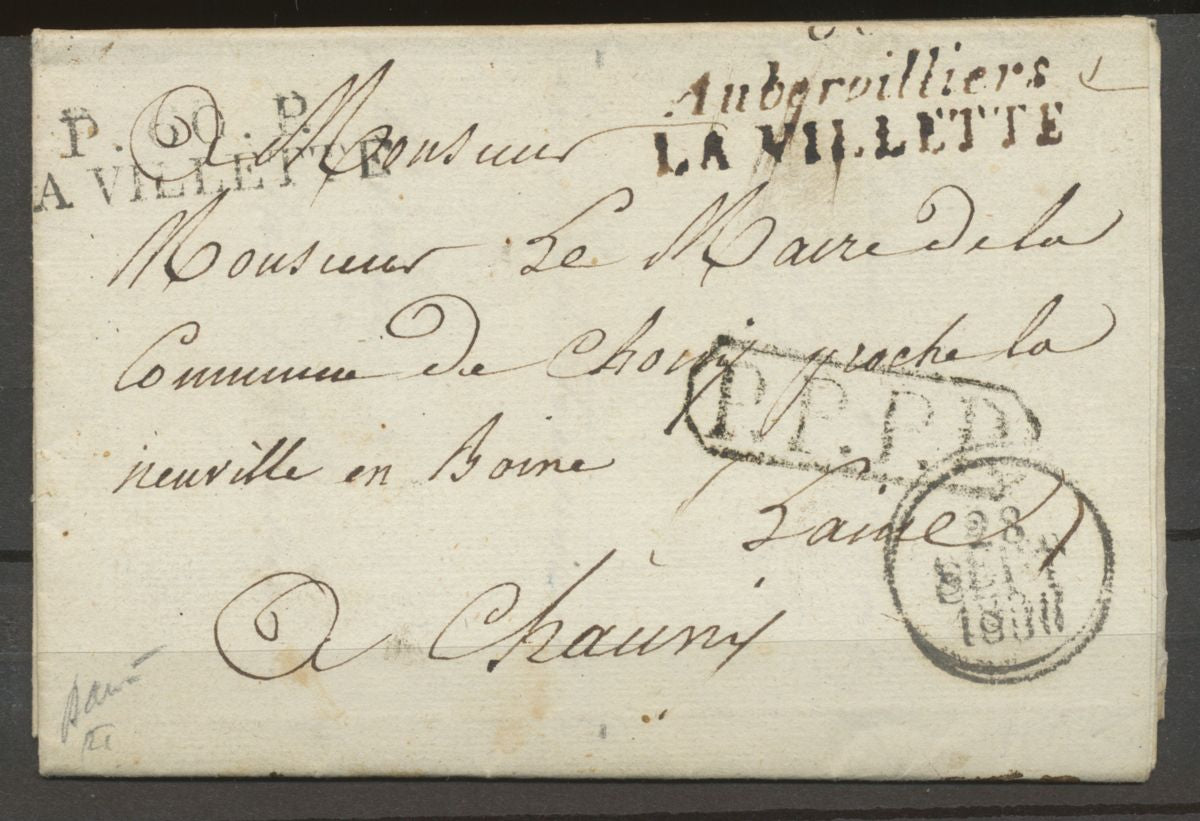 Aubervilliers
LA VILLETTE
P. 60. P.
LA VILLETTE
A Monsieur
Monsieur Le Maire de la
Commune de Choisy proche la
neuville en Boine
P.P.P.P.
Laine
28
SEPT
A Chauny